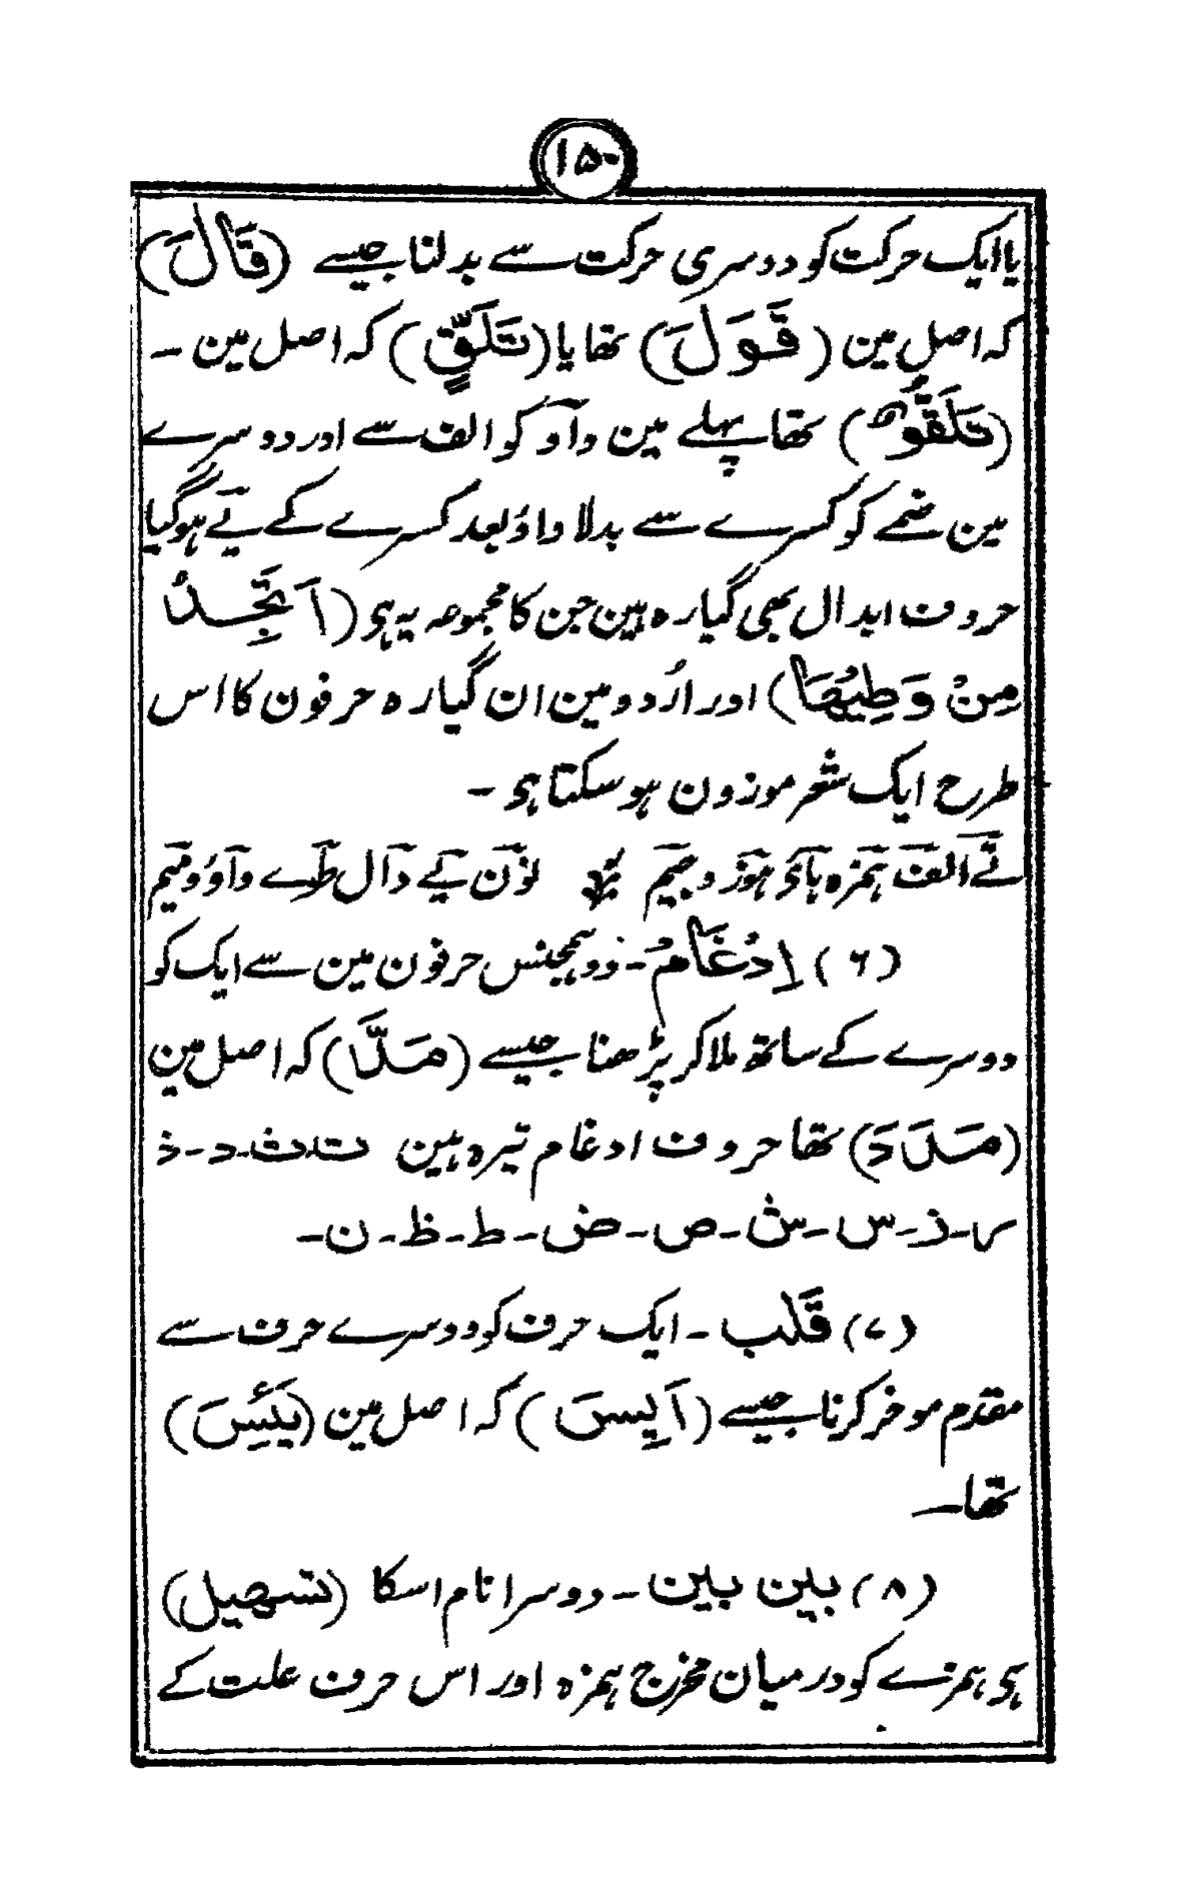 ۱۵۰
یا ایک حرکت کو دوسری حرکت سے بدلنا جیسے (قَالَ)
کہ اصل مین (قَوَلَ) تھا یا (تَلَقٍّ) کہ اصل مین ۔
(تَلَقُّوٌ) تھا پہلے مین وآو کو الف سے اور دوسرے
مین ضمے کو کسرے سے بدلا واؤ بعد کسرے کے یے ہوگیا
حروف ابدال بھی گیارہ ہین جن کا مجموعہ یہ ہی (اَتَّجِدُ
مِنْ وَطِیْھَا) اور اُردو مین ان گیارہ حرفون کا اس
طرح ایک شعر موزون ہوسکتا ہی ۔
تے الف ہمزہ ہائ ہوز و جیم ؎ نون یے دال طے واؤ و میم
(۶) اِدْغَامْ ۔ دو ہمجنس حرفون مین سے ایک کو
دوسرے کے ساتھ ملا کر پڑھنا جیسے (مَدَّ) کہ اصل مین
(مَدَدَ) تھا حروف ادغام تیرہ ہین ت ۔ ث ۔ د ۔ ذ
ر ۔ ز ۔ س ۔ ش ۔ ص ۔ ض ۔ ط ۔ ظ ۔ ن ۔
(۷) قَلب ۔ ایک حرف کو دوسرے حرف سے
مقدم موخر کرنا جیسے (اَیِسَ) کہ اصل مین (یَئِسَ)
تھا ۔
(۸) بین بین ۔ دوسرا نام اسکا (تسھیل)
ہی ہمزے کو درمیان مخرج ہمزہ اور اس حرف علت کے